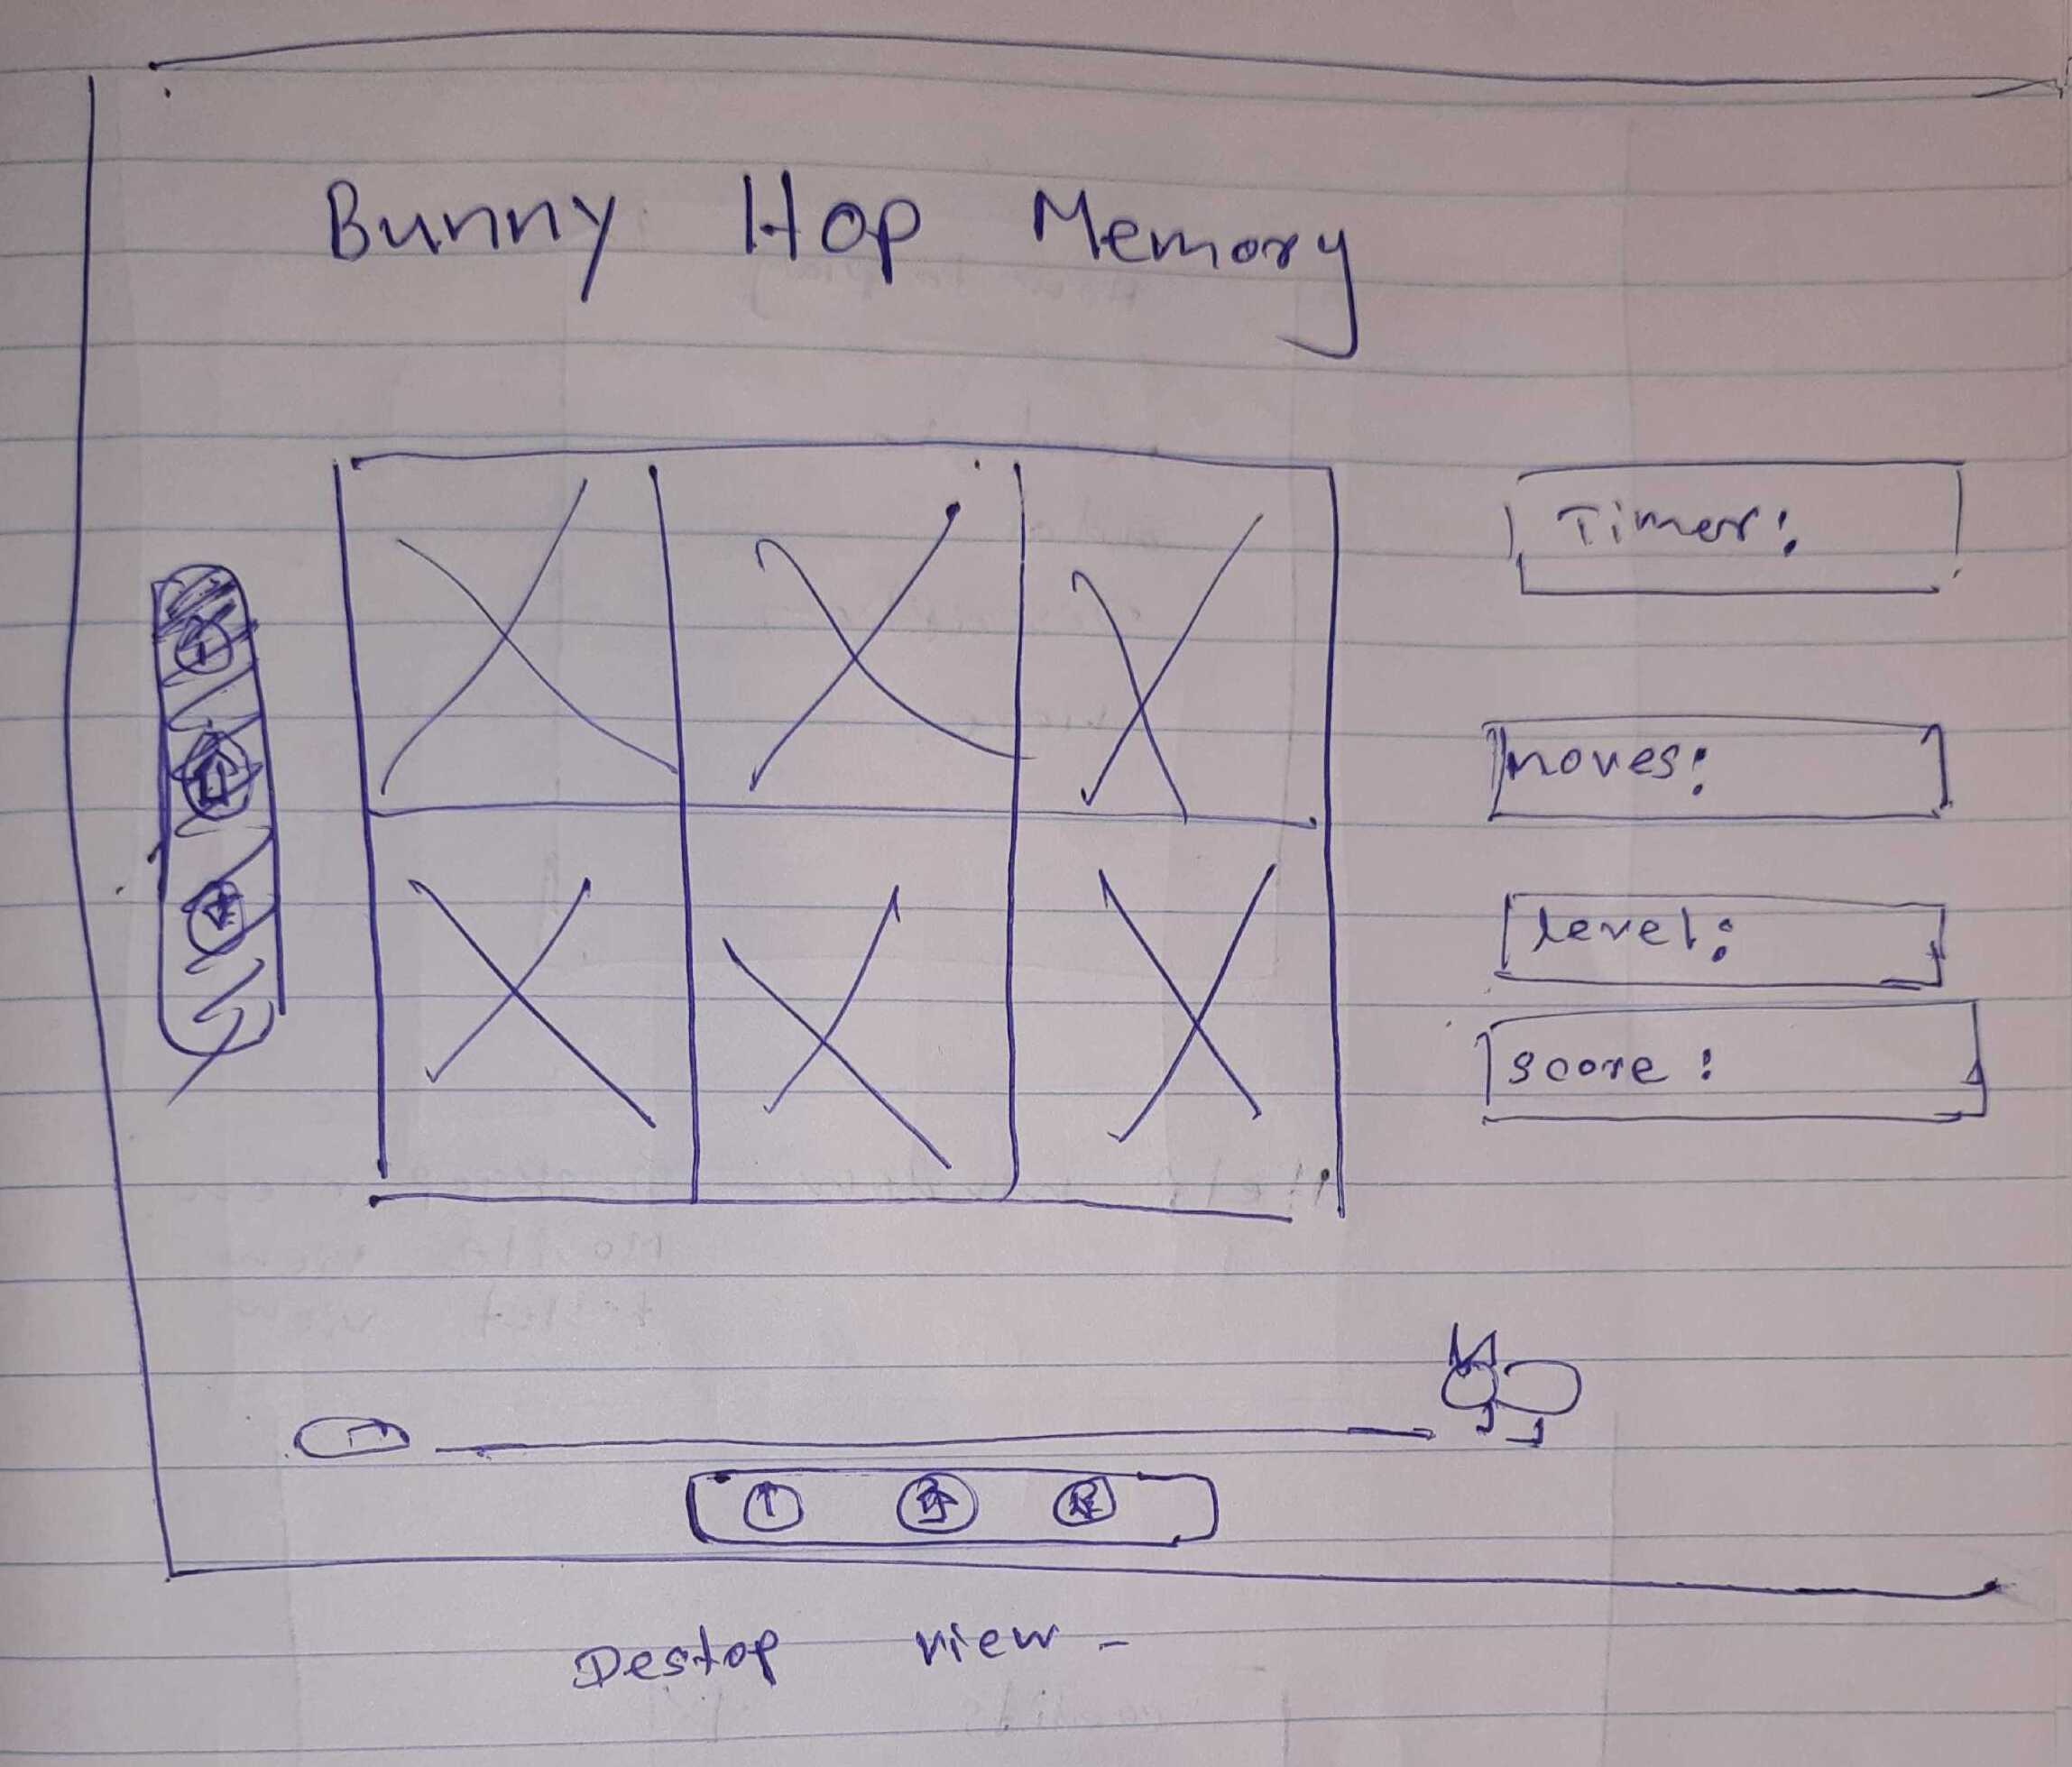 Bunny Hop Memory
Timer:
moves:
level:
score:
Destop view -